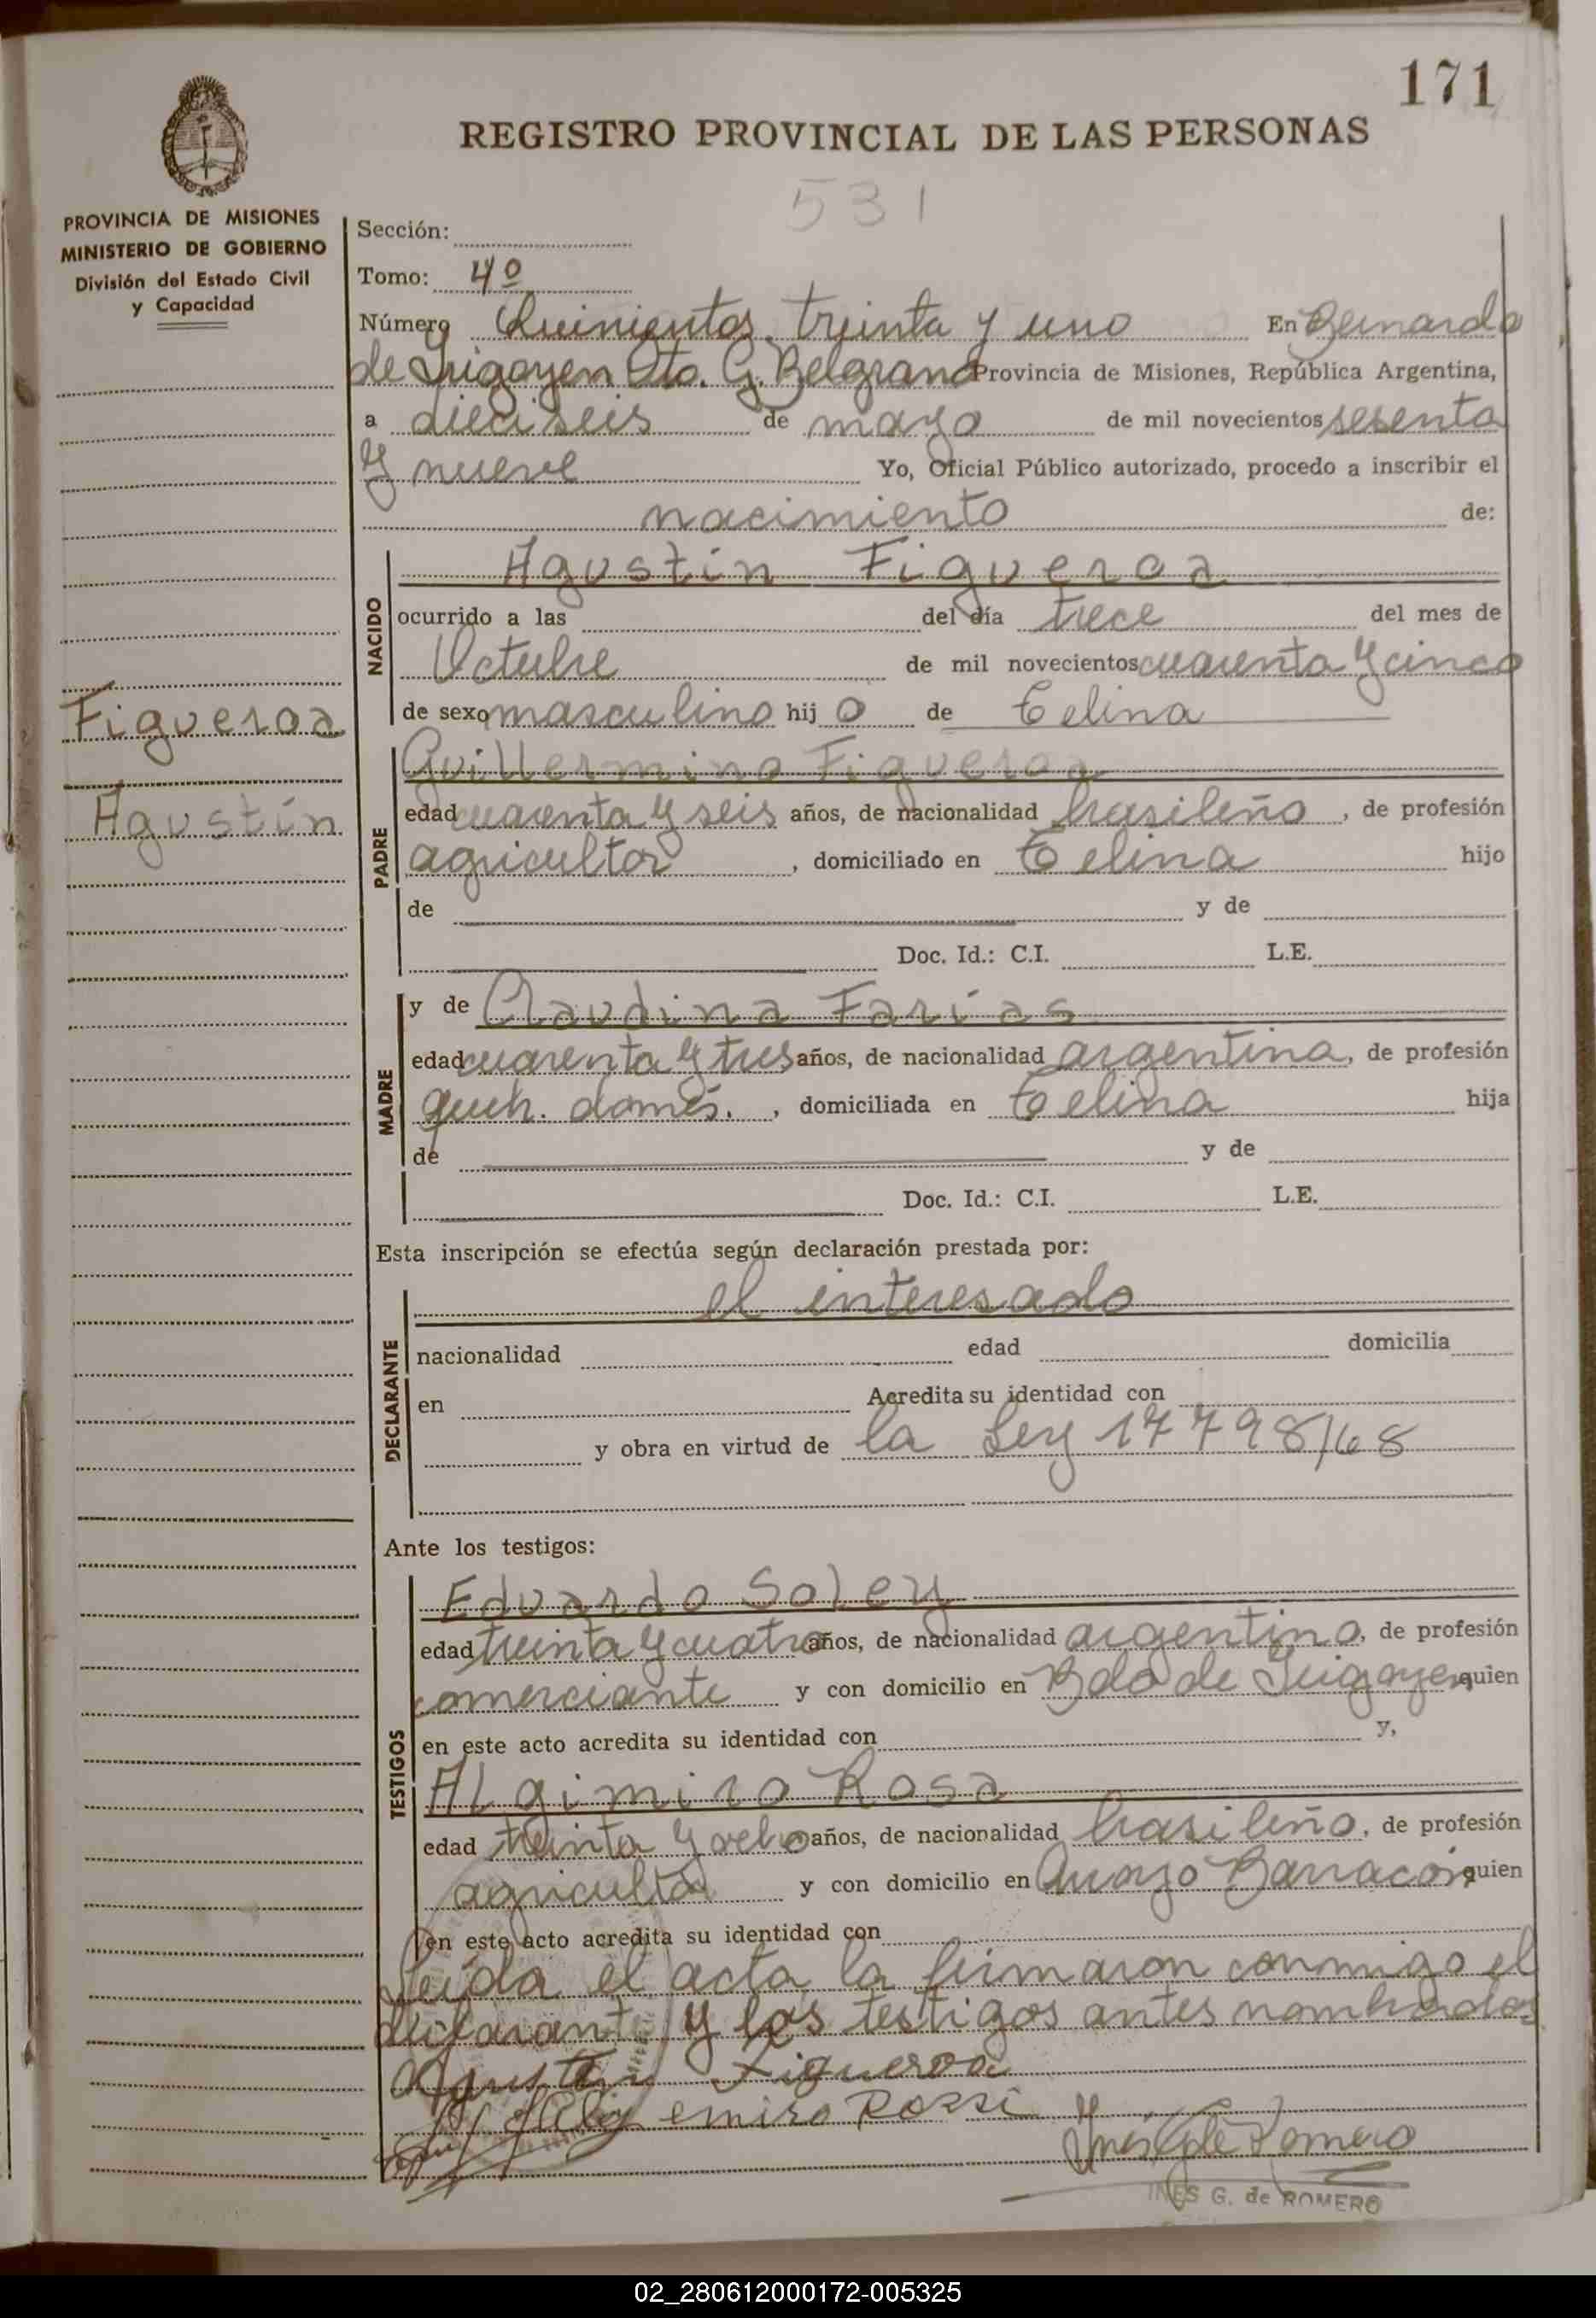 171
REGISTRO PROVINCIAL DE LAS PERSONAS
531
PROVINCIA DE MISIONES
MINISTERIO DE GOBIERNO
División del Estado Civil
y Capacidad
Sección:
Tomo: 4º
Número Quinientos treinta y uno En Bernardo
de Irigoyen Dto. G. Belgrano Provincia de Misiones, República Argentina,
a dieciseis de mayo de mil novecientos sesenta
y nueve Yo, Oficial Público autorizado, procedo a inscribir el
nacimiento de:
NACIDO
Agustín Figueroa
ocurrido a las del día trece del mes de
Octubre de mil novecientos cuarenta y cinco
de sexo masculino hij o de Celina
Figueroa
Agustín
PADRE
Guillermino Figueroa
edad cuarenta y seis años, de nacionalidad brasileño, de profesión
agricultor, domiciliado en Celina hijo
de y de
Doc. Id.: C.I. L.E.
MADRE
y de Claudina Farías
edad cuarenta y tres años, de nacionalidad argentina, de profesión
queh. domés., domiciliada en Celina hija
de y de
Doc. Id.: C.I. L.E.
Esta inscripción se efectúa según declaración prestada por:
DECLARANTE
el interesado
nacionalidad edad domicilia
en Acredita su identidad con
y obra en virtud de la Ley 17798/68
Ante los testigos:
TESTIGOS
Eduardo Soley
edad treinta y cuatro años, de nacionalidad argentino, de profesión
comerciante y con domicilio en Bdo de Irigoyen quien
en este acto acredita su identidad con y,
Algimiro Rosa
edad treinta y ocho años, de nacionalidad brasileño, de profesión
agricultor y con domicilio en Barracón quien
en este acto acredita su identidad con
Leída el acta, la firmaron conmigo el
declarante y los testigos antes nombrados
Agustin Figueroa
Rossi
Inés G de Romero
INES G. de ROMERO
02_280612000172-005325